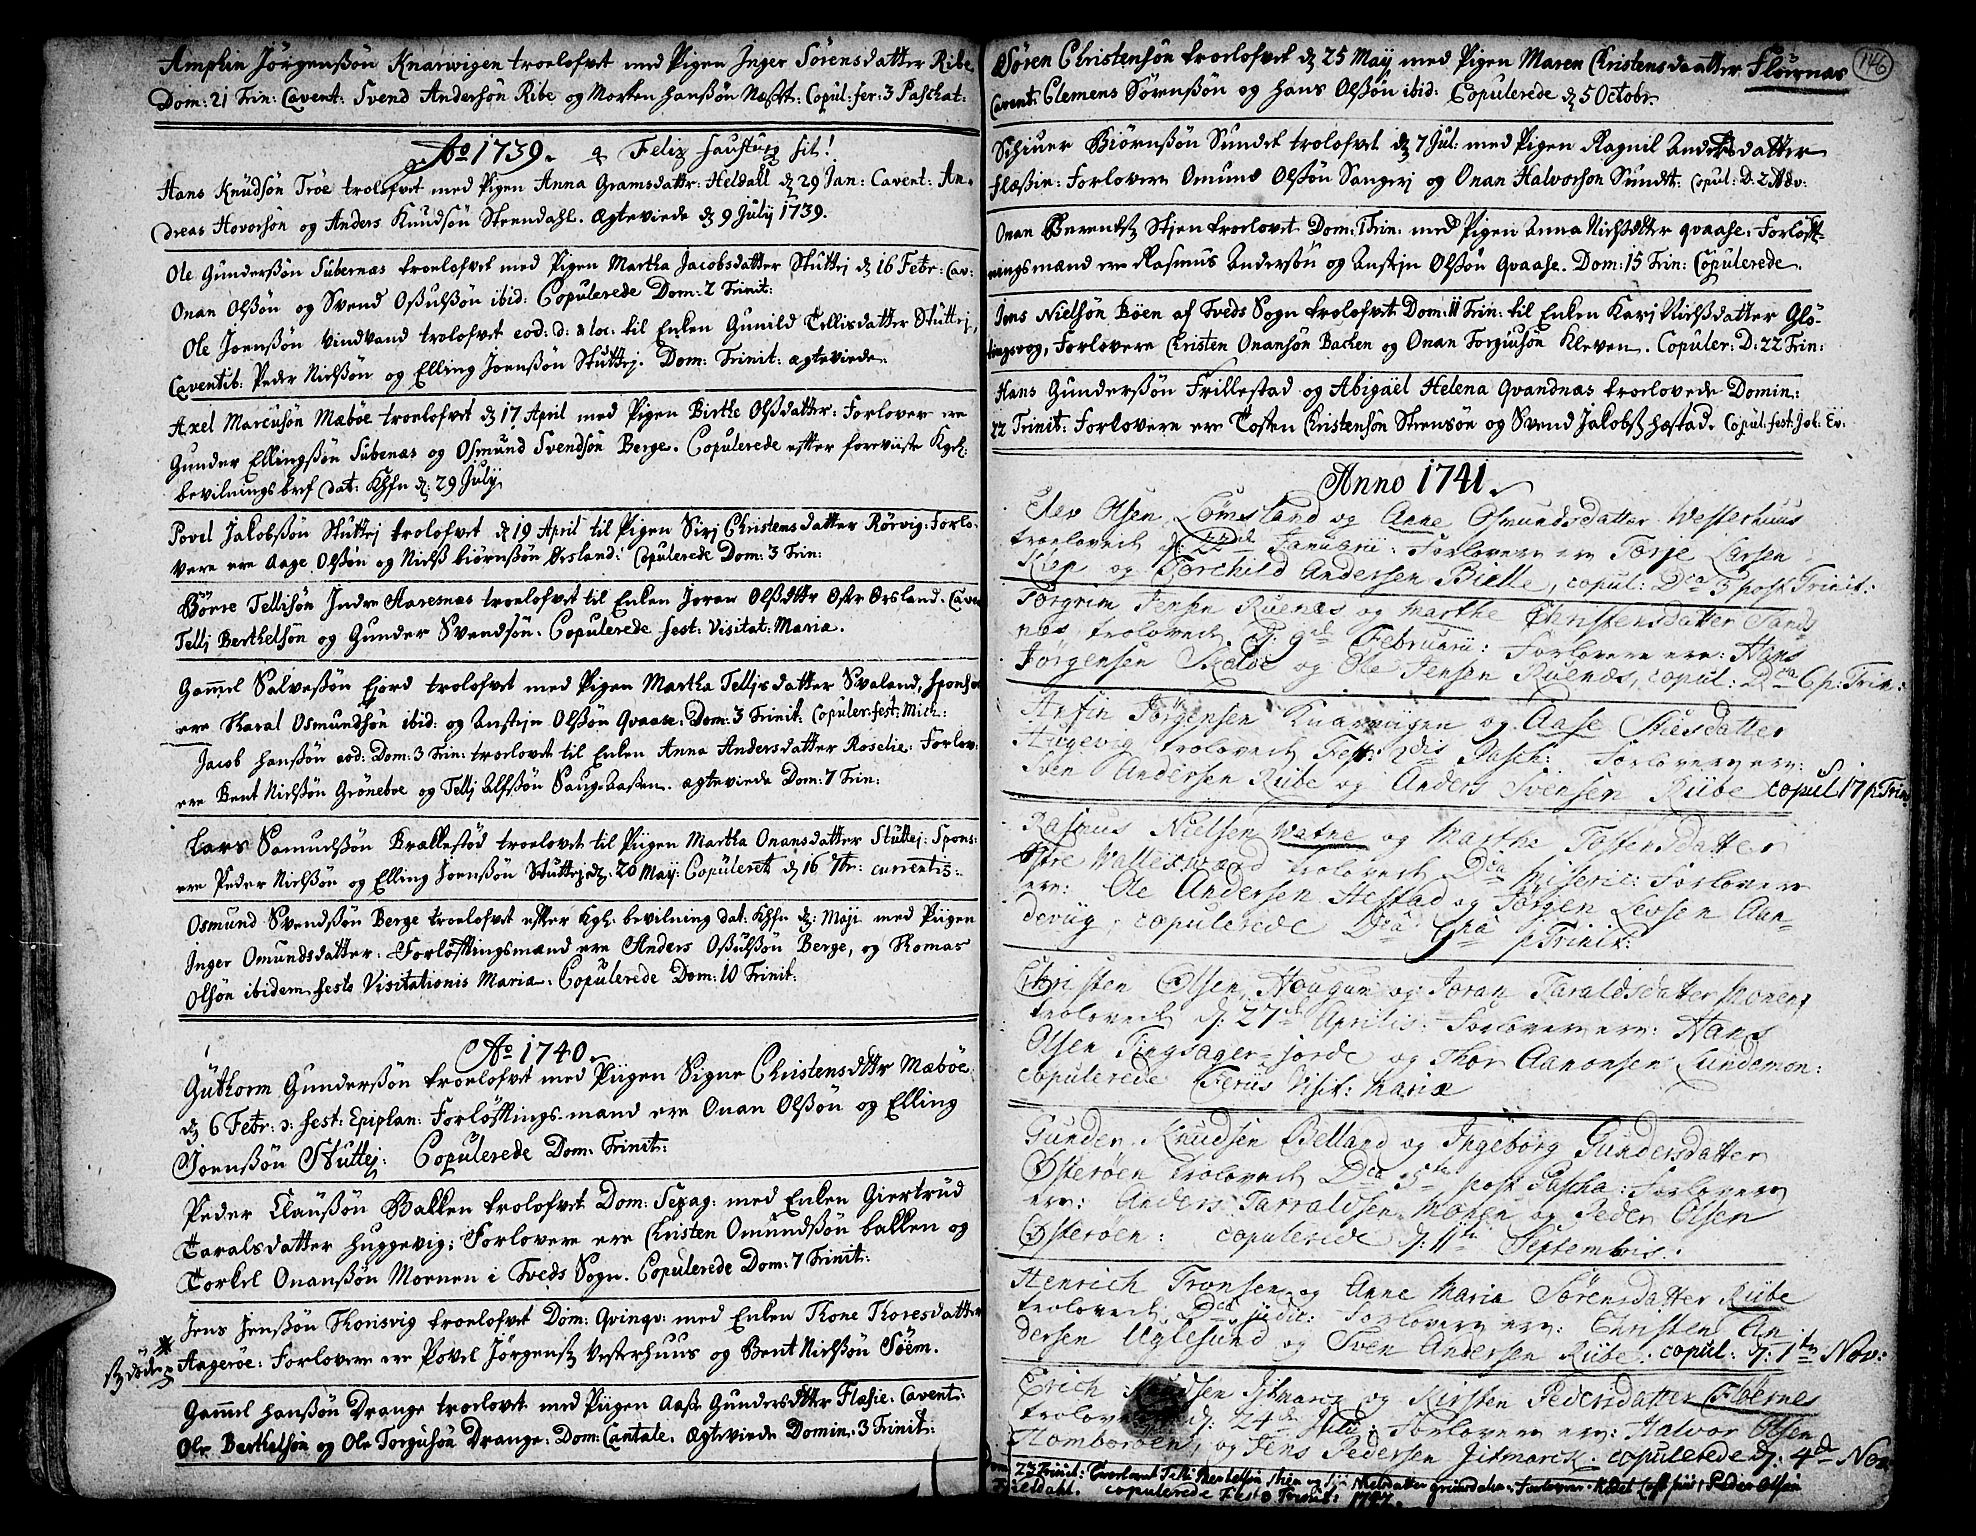 Amphin Jörgensßön Knarwigen troelofvet med Pigen Inger Sörensdatter Ribe
Dom: 21 Trin: Cavent: Svend Andersön Ribe og Morten Hansßön Næstt: Copul: fer: 3 Paschat:
Ao 1739. q Felix faustusq sit!
Hans Knudsön Tröe trolofvet med Pigen Anna Gramsdattr: Heldall d 29 Jan: Cavent: An-
dreas Hovorsön og Anders Knudsön Steendahl. ægteviede d 9 Julij 1739.
Ole Gundersßön Subernas troelofvet med Pigen Martha Jacobsdatter Stuttej d 16 Febr: Cav:
Onan Olsßön og Svend Osulsßön ibid: Copulerede Dom: 2 Trinit:
Ole Joensßön Vindvand trolofvet eod: d: & loc: til Enken Gunild Tellisdatter Stuttej,
Caventib: Peder Nielsßön og Elling Joensßön Stuttej. Dom: Trinit: ægteviede.
Axel Marcusön Mæböe troelofvet d 17 April med Pigen Birthe Olsdatter: Forlover ere
Gunder Ellingsßön Subenas og Osmund Svendsön Berge. Copulerede efter foreviiste Kgel:
bevilnings bref dat: Khfn d: 29 July
Povel Jakobsßön Stuttej trolofvet d 19 April til Pigen Sirj Christensdatter Rörvig: Forlo-
vere ere Aage Olsßön og Niels biörnsßön Örsland: Copulerede Dom: 3 Trin:
Börre Tellisön Indre Aaresnas troelofvet til Enken Joran Olsdttr Oster Örsland. Caven
Tellj Berthelsön og Gunder Svendsön. Copulerede fest: Visitat: Maria.
Gamel Salvesßön Ejord trolofvet med Pigen Martha Telljsdatter Svaland, Sponsor
ere Haral Osmundsön ibid: og Anstejn Olsßön Qvaase: Dom: 3 Trinit: Copuler: fest: Mich:
Jacob Hansßön eod: Dom: 3 Trin: troelovet til Enken Anna Andersdatter Roselie. Forlov:
ere Bent Nielsßön Gröneboe og Tellj Alfsßön Saug-Aasen. ægteviede Dom: 7 Trin:
Lars Samuelsßön Brallestöd troelovet til Piigen Martha Onansdatter Stuttej: Spons:
ere Peder Nielsßön og Elling Joensßön Stuttej d: 20 May: Copuleret d 16 7br: currentis:
Osmund Svendsßön Berge troelofvet efter Kgl: bevilning dat: Khfn d: Maji med Piigen
Inger Omundsdatter: Forlöfttingsmænd ere Anders Osulsßön Berge, og Thomas
Olsön ibidem festo Visitationis Maria. Copulerede Dom: 10 Trinit:
Ao 1740.
Guthorm Gundersßön troelofvet med Piigen Signe Christensdttr Mæböe
d 6 Febr: ɔ: fest: Epiphan: Forlöfttings-mænd ere Onan Olsßön og Elling
Joensßön Stuttej: Copulerede Dom: Trinit:
Peder Clausßön Bakken trolofvet Dom: Sexag: med Enken Giertrud
Taralsdatter Huggevig: Forlovere ere Christen Omundsßön bakken og
Torkel Onansßön Moenen i Tveds Sogn. Copulerede Dom: 7 Trinit:
Jens Jensßön Thorisvig troelofvet Dom: Qvinqv: med Enken Thone Thoresdatter
Aagerøe: Forlovere ere Povel Jörgens Vesterhuus og Bent Nielsßön Söem.
Gamel Hansßön Drange troelovet med Piigen Aase Gundersdttr Flasie: Cavent:
Ole Berthelsön og Ole Torgusön Drange: Dom: Cantale. ægteviede Domin: 3 Trinit:
146
Sören Christensön troelofvet d 25 Maij med Pigen Maren Christensdaatter Floernas
Cavent: Clemens Sörensßön og Hans Olsßön ibid: Copulerede d 5 Octobr.
Schiuer Biörnsßön Sundet trolofvet d 7 Jul: med Pigen Ragnil Andersdatter
Flæsiu: Forlovere Omund Olsßön Sangerj og Onan Halvorsön Sundt: Copul: D: 2 Adv:
Onan Berents Stjen troelovet Dom: 1 Trin: med Pigen Anna Nielsdtter Qvaase: Forlöft-
ningsmænd ere Rasmus Andersön og Anstejn Olsßön Qvaase. Dom: 15 Trin: Copulerede.
Jens Nielsön Böen af Tveds Sogn trolofvet Dom: 11 Trin: til Enken Karj Nielsdatter Glö-
tingsvog, Forlovere Christen Onansön Backen og Onan Torgiusön Kleven. Copuler: D: 22 Trin:
Hans Gundersßön Trillestad og Abigäel Helena Qvandnas troelovede Domin:
22 Trinit: Forlovere ere Tosten Christensön Strensöe og Svend Jakobs Hæstad. Copul: fest: Joh: Ev:
Anno 1741.
Elev Olsen Lömsland og Anne Osmundsdatter Westerhuus
troelovede d: 22de Januarii: Forlovere ere Torje Larsen
Kiep og Torchild Andersen Bielle, copul: Dca 3 post Trinit:
Torgrim Jensen Ruenæs og Marthe Christensdatter Sand-
nas, trolovede d: 9de Februarii: Forlovere ere: Hans
Jörgensen og Ole Jensen Ruenæs, copul: Dca 6 p: Trin:
Arfin Jörgensen Knarviigen og Aase
Hugevig trolovede Fest: 2dis Pasch: Forlovere ere:
Sven Andersen Rübe og Anders Svensen Rübe copul 17 p Trin
Rasmus Nielsen Watne og Marthe Tostensdatter
östre Wallesværd trolovede Dca Miseric: Forlovere
ere: Ole Andersen Hestad og Jörgen Levsen Aun-
deviig, copulerede Dca 9na p Trinit:
Christen Olsen Hougun og Joran Taraldsdatter Monen
trolovede d: 27de Aprilis: Forlovere ere: Hans
Olsen Tingsager-jorde og Thor Aanonsen Lundemon:
copulerede Feriis Visit: Mariæ
Gunder Knudsen Belland og Ingeborg Gundersdatter
Österöen trolovede Dca 5te post Pascha: Forlovere
ere: Anders Tarraldsen Monen og Peder Olsen
Österöen: copulerede d: 11te Septembris.
Henrich Tronsen og Anne Maria Sörensdatter Rübe
trolovede Dca judic: Forlovere ere: Christen An
dersen Uglesund og Sven Andersen Rübe: copul: d: 1ste Nov:
Erich Jitmarck og Kirsten Pedersdatter Floernes
trolovede d: 24de Julii; Forlovere ere: Halvor Olsen
Homboröen, og Jens Pedersen Jitmarck. copulerede d: 4de Nov
Dom 23 Trinit: Troelovet og Nielsdatter Forlovere Peder Olsön
copulerede Festo Trinit: 1742.